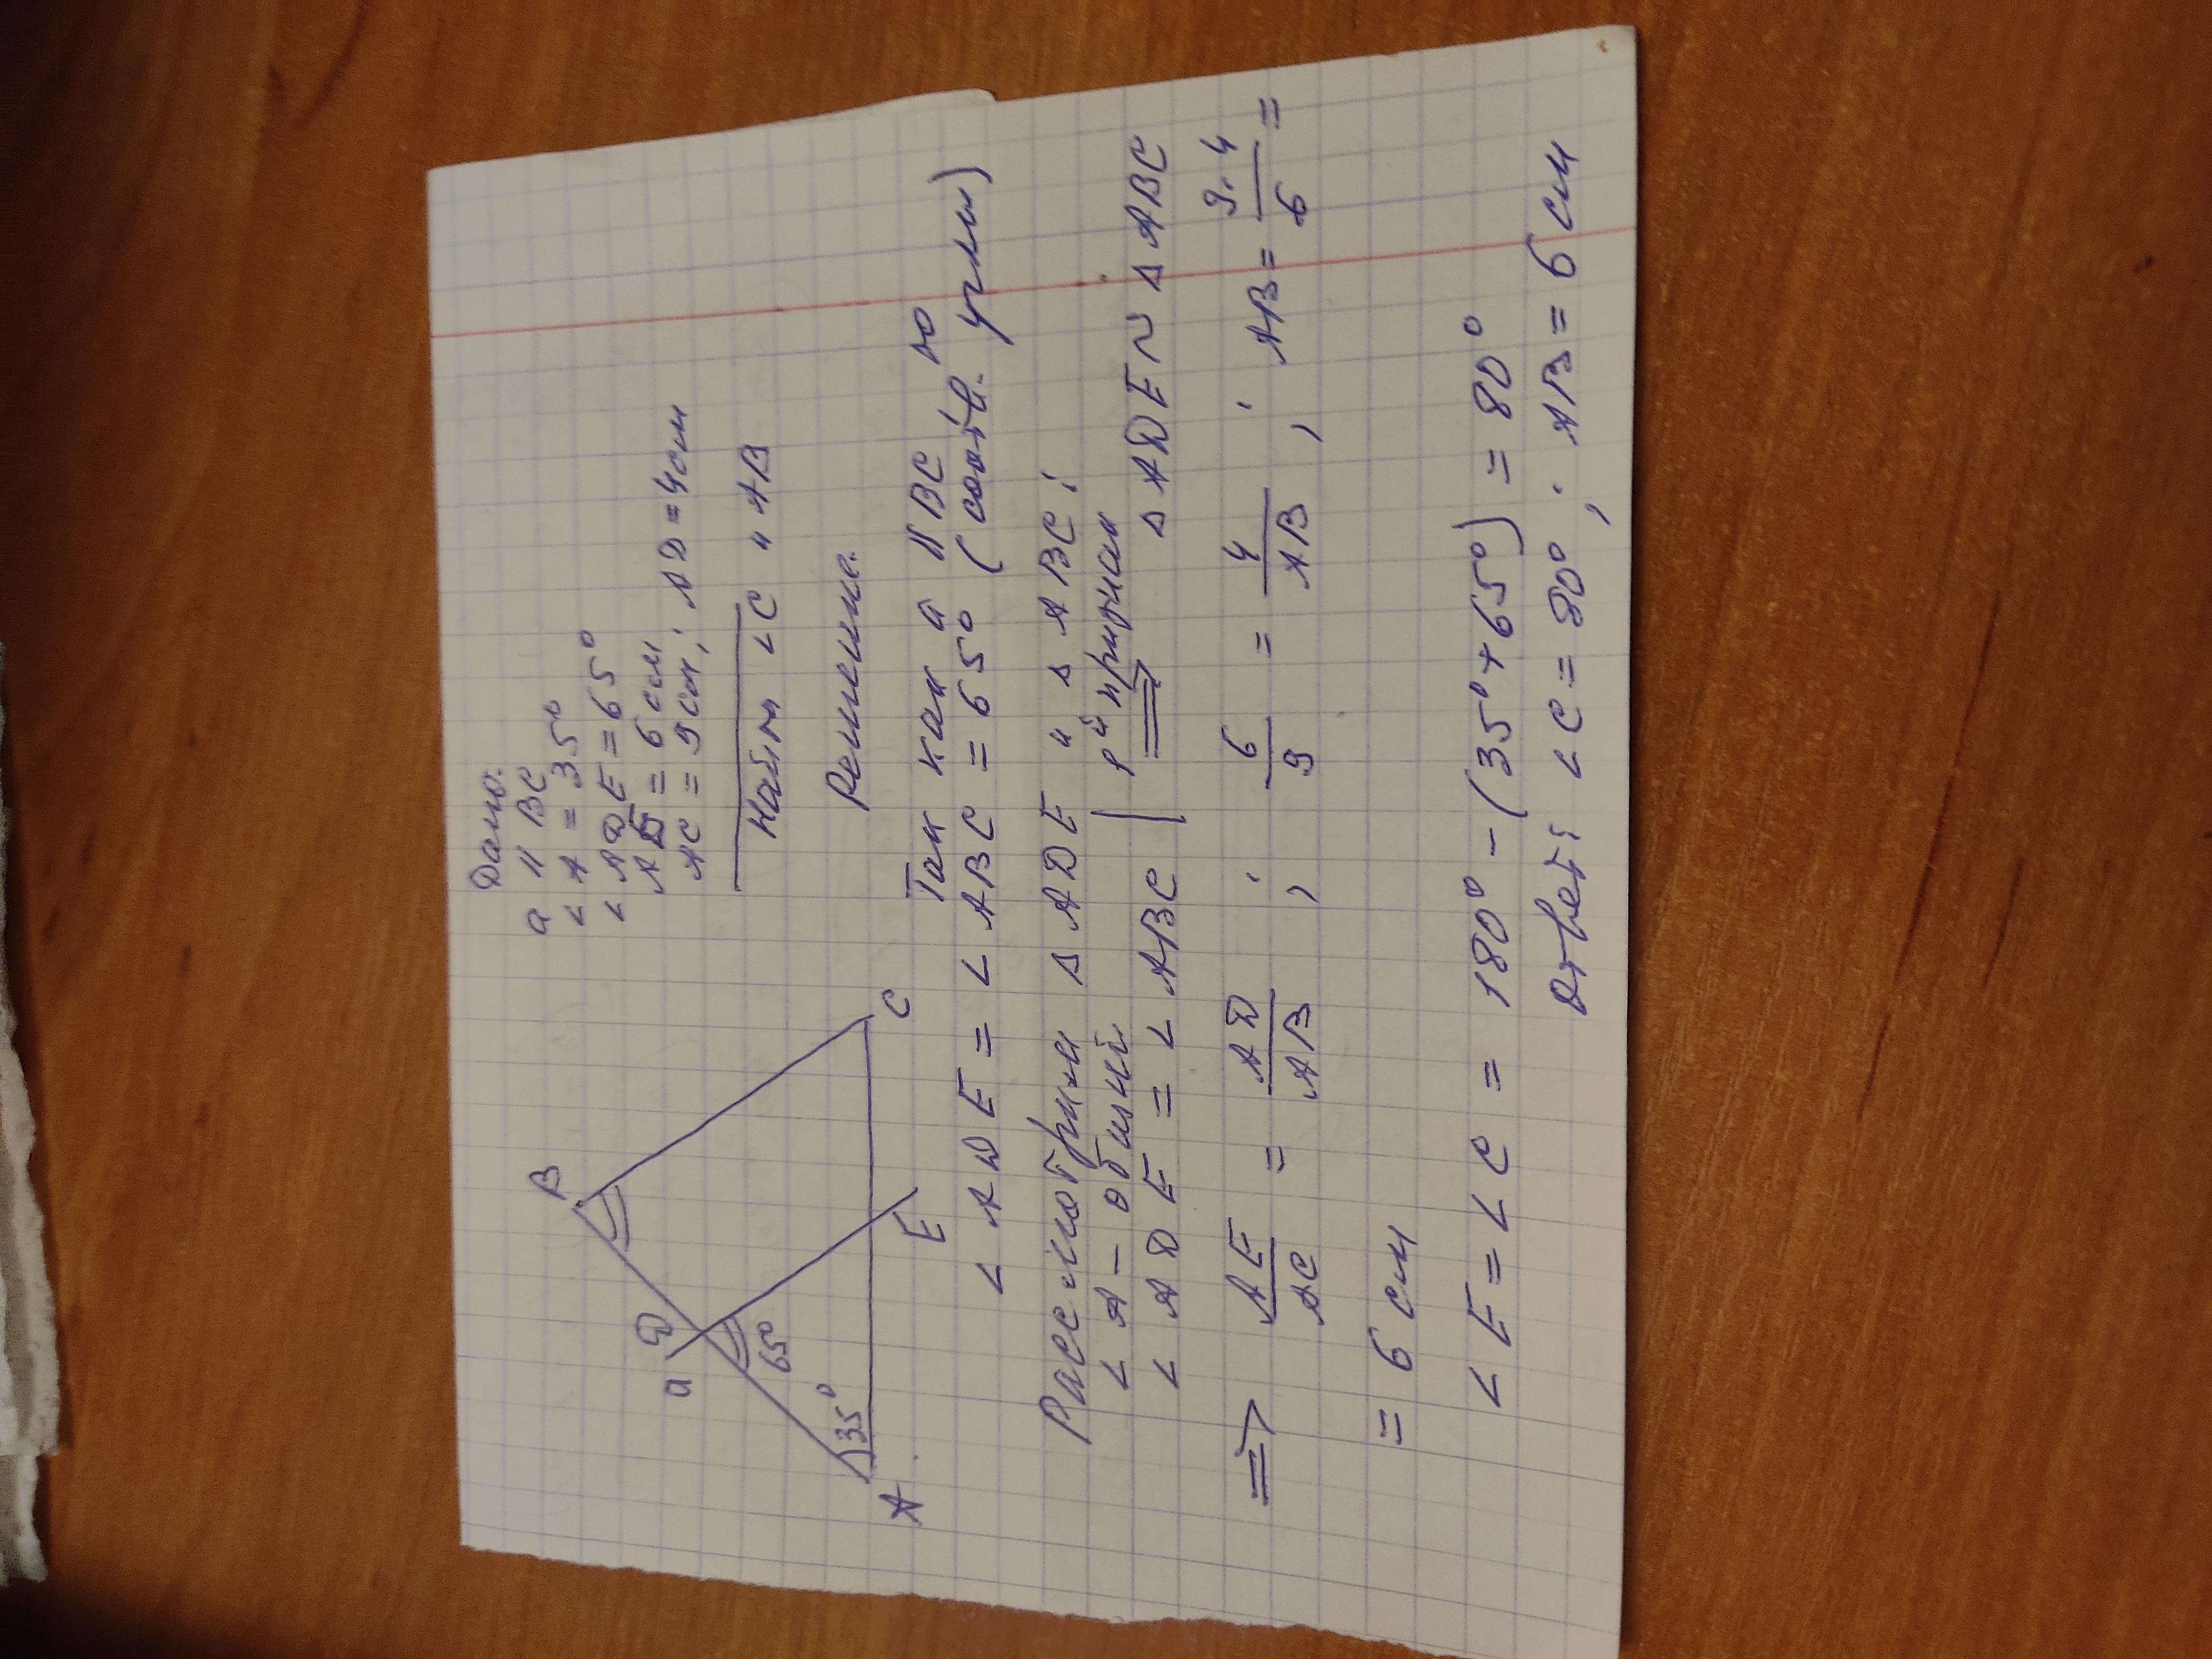 Дано:
a || BC
∠A = 35°
∠ADE = 65°
AE = 6 см
AC = 9 см; AD = 4 см
Найти ∠C и AB
B
a D
65°
35°
A E C
Решение.
Так как a || BC то
∠ADE = ∠ABC = 65° (соотв. углы)
Рассмотрим △ADE и △ABC:
∠A – общий
∠ADE = ∠ABC | 1й признак ⟹ △ADE ~ △ABC
⟹ AE/AC = AD/AB ; 6/9 = 4/AB ; AB = 9·4/6 =
= 6 см
∠E = ∠C = 180° – (35° + 65°) = 80°
Ответ: ∠C = 80° ; AB = 6 см